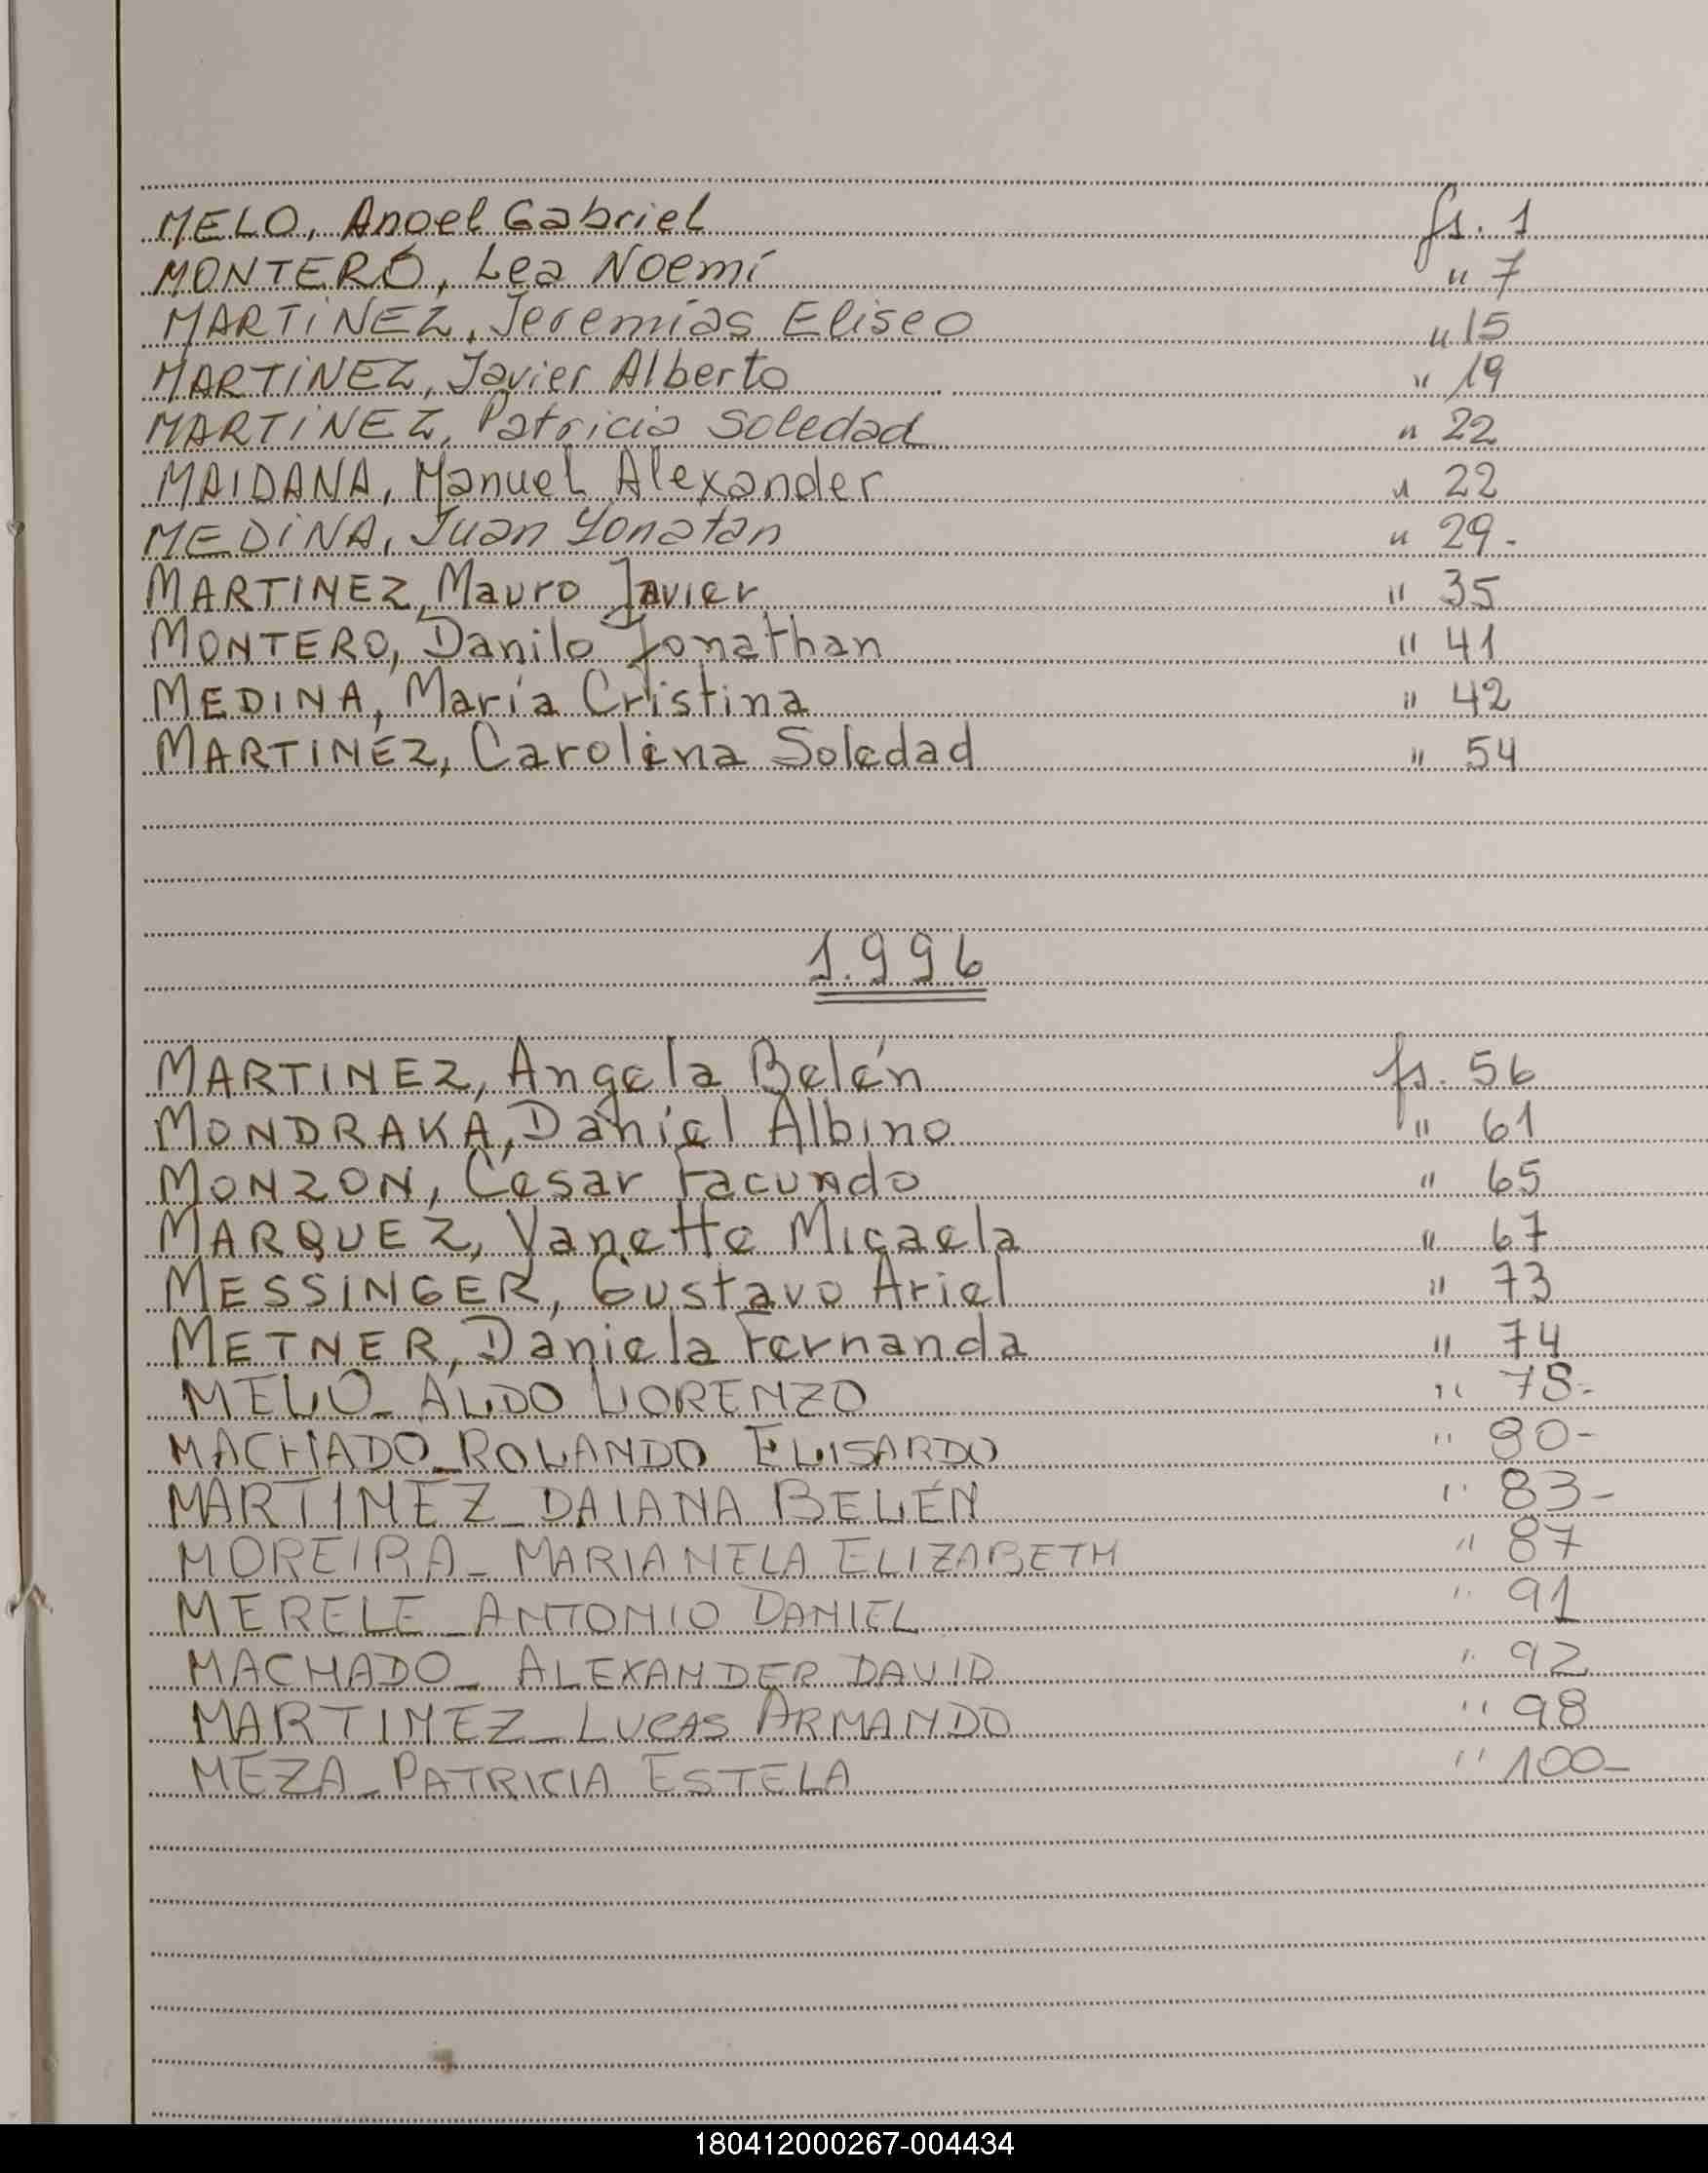 MELO, Angel Gabriel fs. 1
MONTERO, Lea Noemí " 7
MARTINEZ, Jeremías Eliseo " 15
MARTINEZ, Javier Alberto " 19
MARTINEZ, Patricia Soledad " 22
MAIDANA, Manuel Alexander " 22
MEDINA, Juan Yonatan " 29-
MARTINEZ, Mauro Javier " 35
MONTERO, Danilo Jonathan " 41
MEDINA, María Cristina " 42
MARTINEZ, Carolina Soledad " 54
1.996
MARTINEZ, Angela Belén fs. 56
MONDRAKA, Daniel Albino " 61
MONZON, César Facundo " 65
MARQUEZ, Vanette Micaela " 67
MESSINGER, Gustavo Ariel " 73
METNER, Daniela Fernanda " 74
MELO_ ALDO LORENZO " 78-
MACHADO_ROLANDO ELISARDO " 80-
MARTINEZ_DAIANA BELÉN " 83-
MOREIRA_ MARIANELA ELIZABETH " 87
MERELE_ANTONIO DANIEL " 91
MACHADO_ ALEXANDER DAVID " 92
MARTINEZ_LUCAS ARMANDO " 98
MEZA_PATRICIA ESTELA " 100-
180412000267-004434